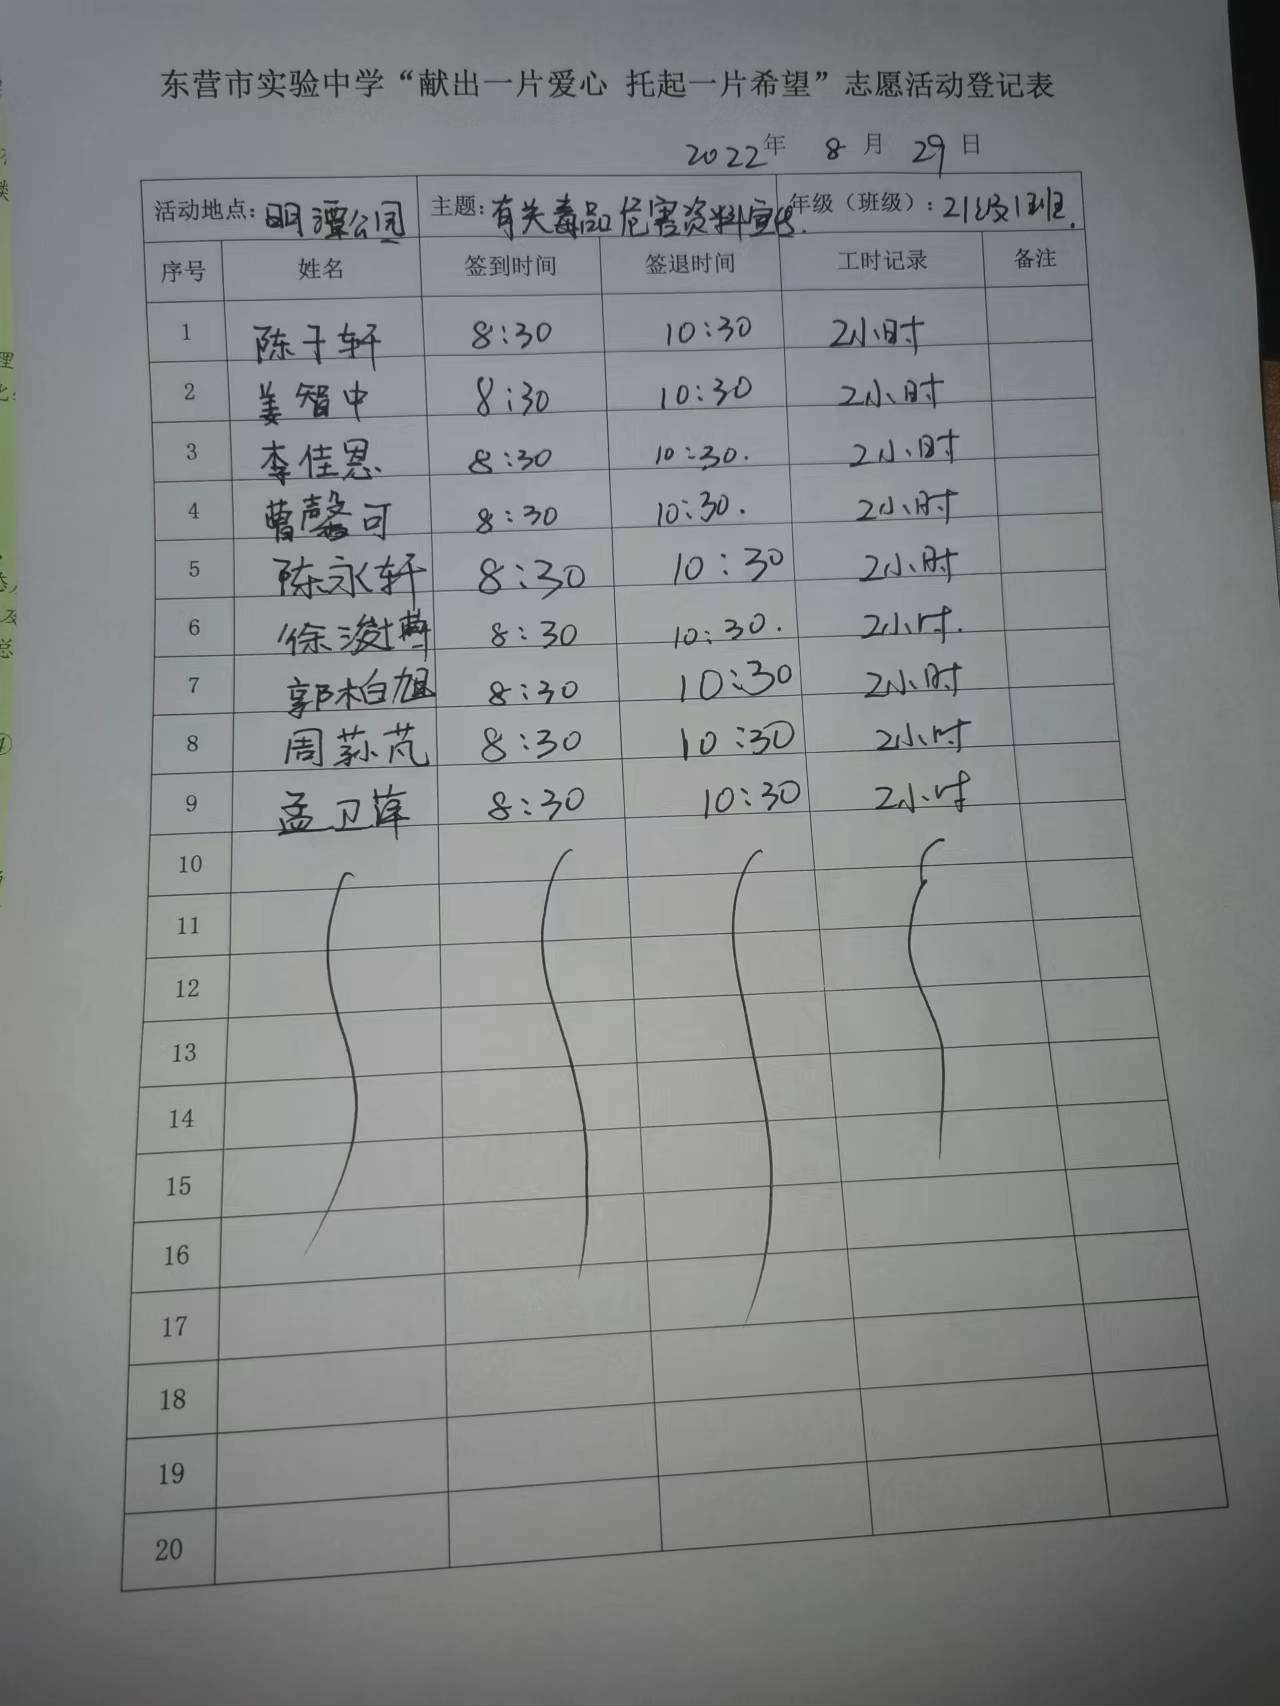 东营市实验中学“献出一片爱心 托起一片希望”志愿活动登记表
2022年 8月 29日
活动地点：明潭公园 主题：有关毒品危害资料宣传. 年级（班级）：21级1班.
序号 姓名 签到时间 签退时间 工时记录 备注
1 陈于轩 8:30 10:30 2小时
2 姜智中 8:30 10:30 2小时
3 李佳恩 8:30 10:30. 2小时
4 曹馨可 8:30 10:30. 2小时
5 陈永轩 8:30 10:30 2小时
6 徐浚博 8:30 10:30. 2小时.
7 郭柏旭 8:30 10:30 2小时
8 周荪芃 8:30 10:30 2小时
9 孟卫萍 8:30 10:30 2小时
10
11
12
13
14
15
16
17
18
19
20